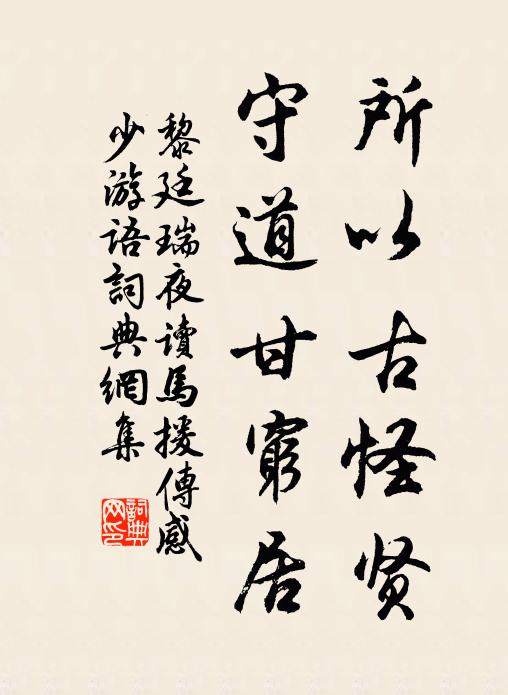 所以古怪贤
守道甘窮居
黎廷瑞夜读馬援傳感
少游語詞典網集
詞典
网印